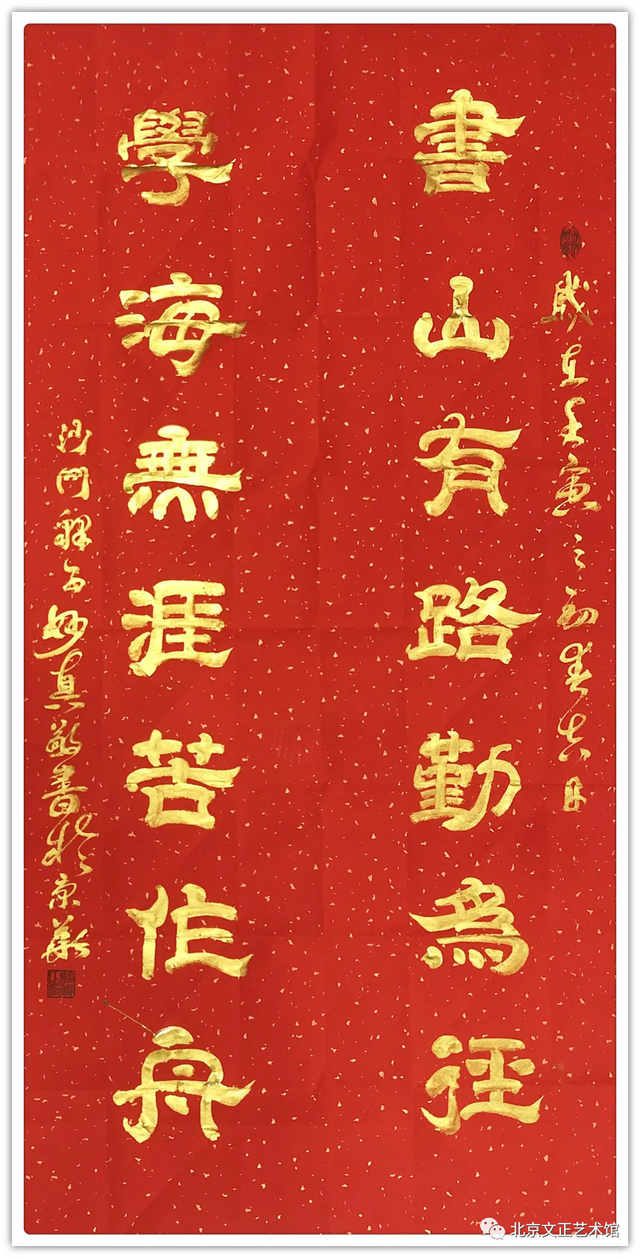 歲在壬寅之初春吉日
書山有路勤為徑
學海無涯苦作舟
沙門釋妙真敬書於京華
北京文正艺术馆